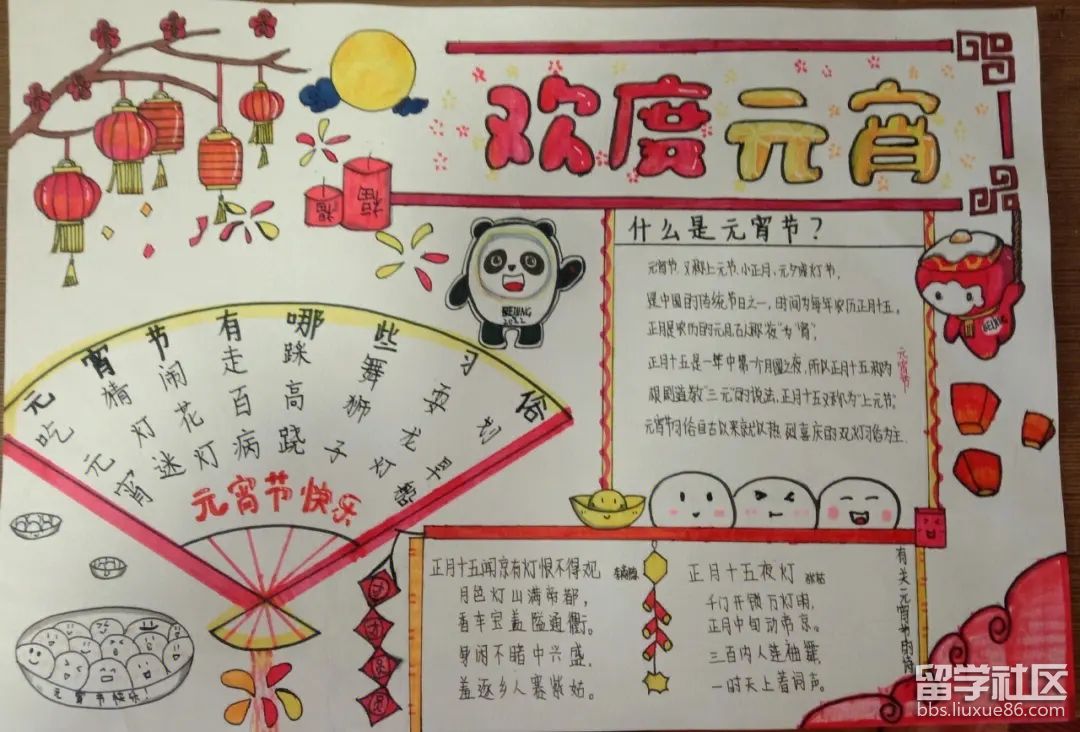 欢度元宵
福
福
BEIJING
2022
什么是元宵节？
元宵节，又称上元节、小正月、元夕或灯节，
是中国的传统节日之一，时间为每年农历正月十五，
正月是农历的元月，古人称"夜"为"宵"，
正月十五是一年中第一个月圆之夜，所以正月十五称为
元宵节
根据道教"三元"的说法，正月十五又称为"上元节"。
元宵节习俗自古以来就以热烈喜庆的观灯习俗为主.
BEIJING
元宵节有哪些习俗
吃元宵
猜灯谜
闹花灯
走百病
踩高跷
舞狮子
耍龙灯
划旱船
元宵节快乐
元宵节快乐!
正月十五闻京有灯恨不得观
李商隐
月色灯山满帝都，
香车宝盖隘通衢。
身闲不睹中兴盛，
羞逐乡人赛紫姑。
正月十五夜灯
张祜
千门开锁万灯明，
正月中旬动帝京。
三百内人连袖舞，
一时天上著词声。
有关元宵节的诗
留学社区
bbs.liuxue86.com